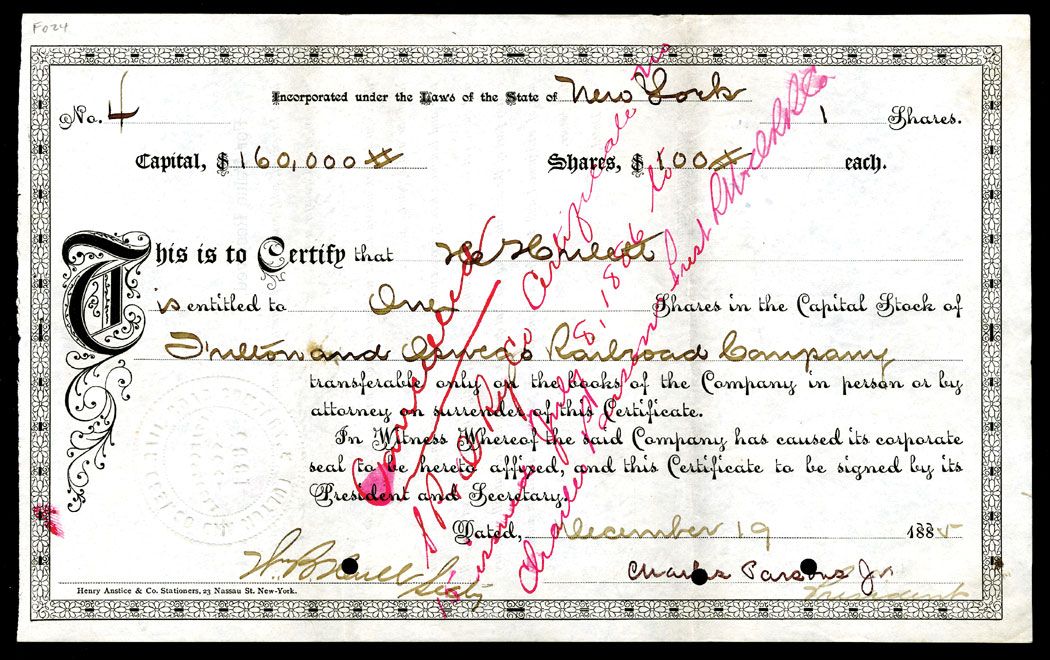 F024
Incorporated under the Laws of the State of New York
No. 4 1 Shares.
Capital, $ 160,000 Shares, $ 100 each.
This is to Certify that H
is entitled to One Shares in the Capital Stock of
Fulton and Oswego Railroad Company
transferable only on the books of the Company in person or by
attorney on surrender of this Certificate.
In Witness Whereof the said Company has caused its corporate
seal to be hereto affixed, and this Certificate to be signed by its
President and Secretary.
Dated, December 19 1885
Wm B Secty Charles Parsons Jr.
President
Henry Anstice & Co. Stationers, 23 Nassau St. New-York.
Cancelled
Ry Co Certificate No
Issued July 8, 1886 to
Charles Parsons Prest